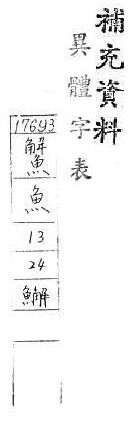 補充資料
異體字表
17693
魚
13
24
䲒